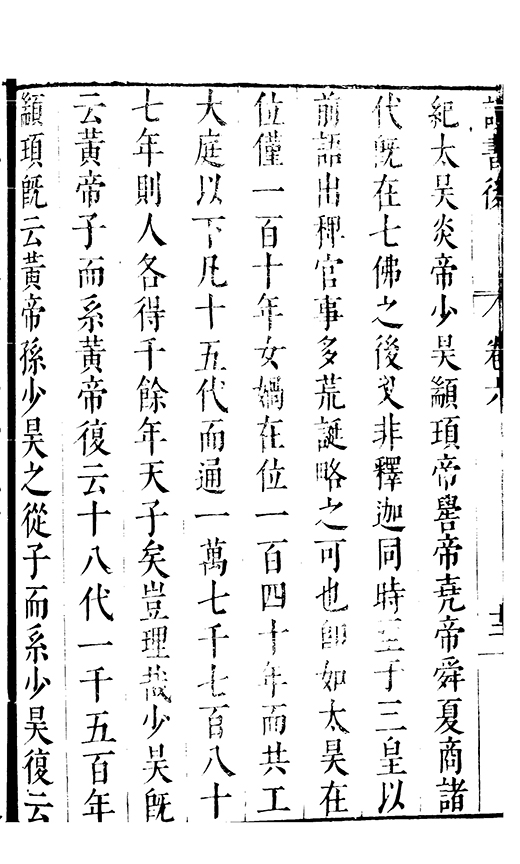 讀書後 卷六 十三
紀太昊炎帝少昊顓頊帝嚳帝堯帝舜夏商諸
代旣在七佛之後又非釋迦同時至于三皇以
前語出稗官事多荒誕略之可也卽如太昊在
位僅一百十年女媧在位一百四十年而共工
大庭以下凡十五代而通一萬七千七百八十
七年則人各得千餘年天子矣豈理哉少昊旣
云黃帝子而系黃帝復云十八代一千五百年
顓頊旣云黃帝孫少昊之從子而系少昊復云